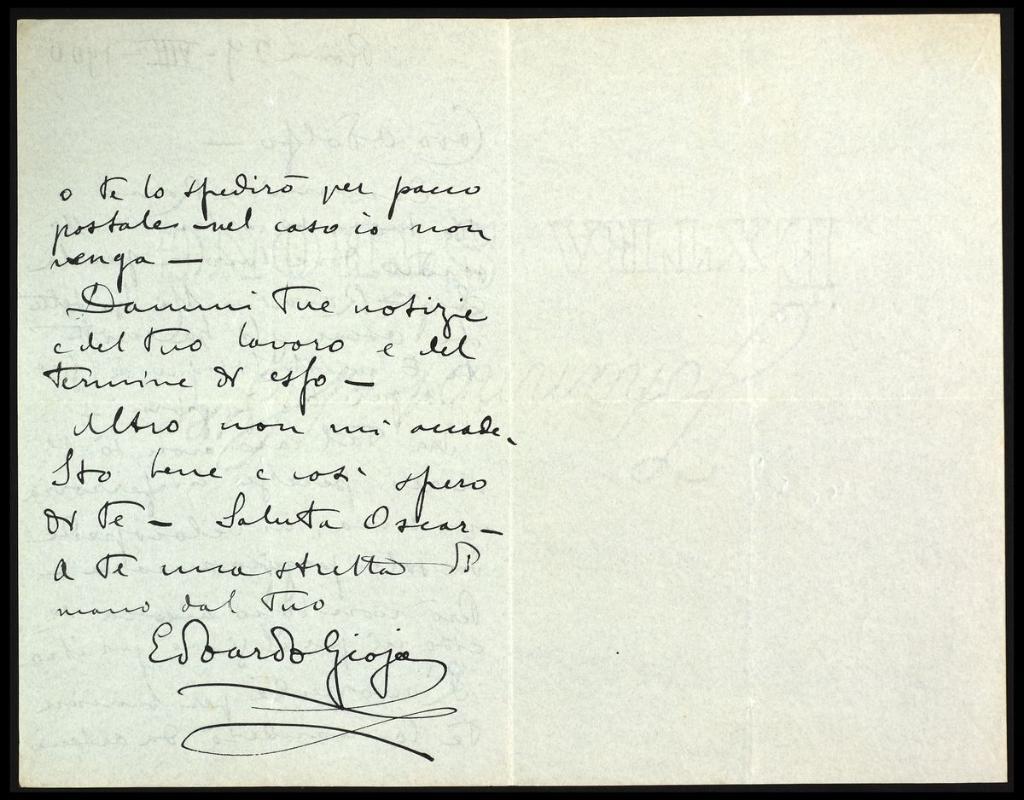 o te lo spedirò per pacco
postale nel caso io non
venga —
Dammi tue notizie
e del tuo lavoro e del
termine di esso —
Altro non mi accade.
Sto bene e così spero
di te — Saluta Oscar —
A te una stretta di
mano dal tuo
Edoardo Gioja